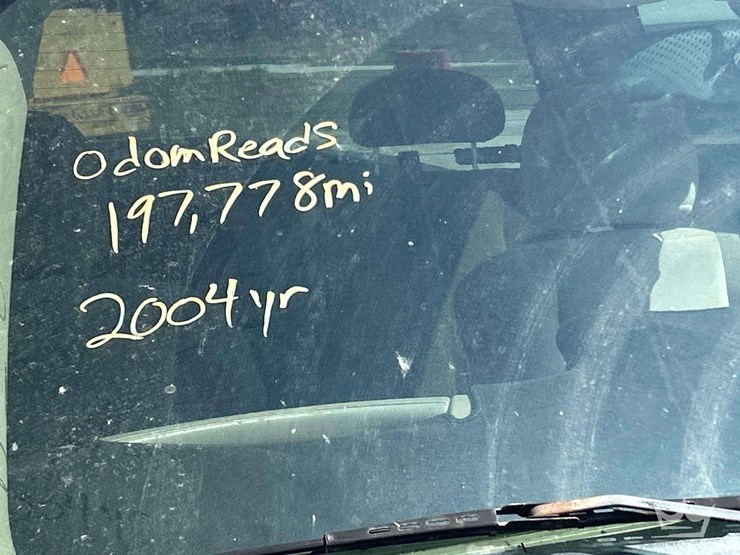 Odom Reads
197,778mi
2004 yr